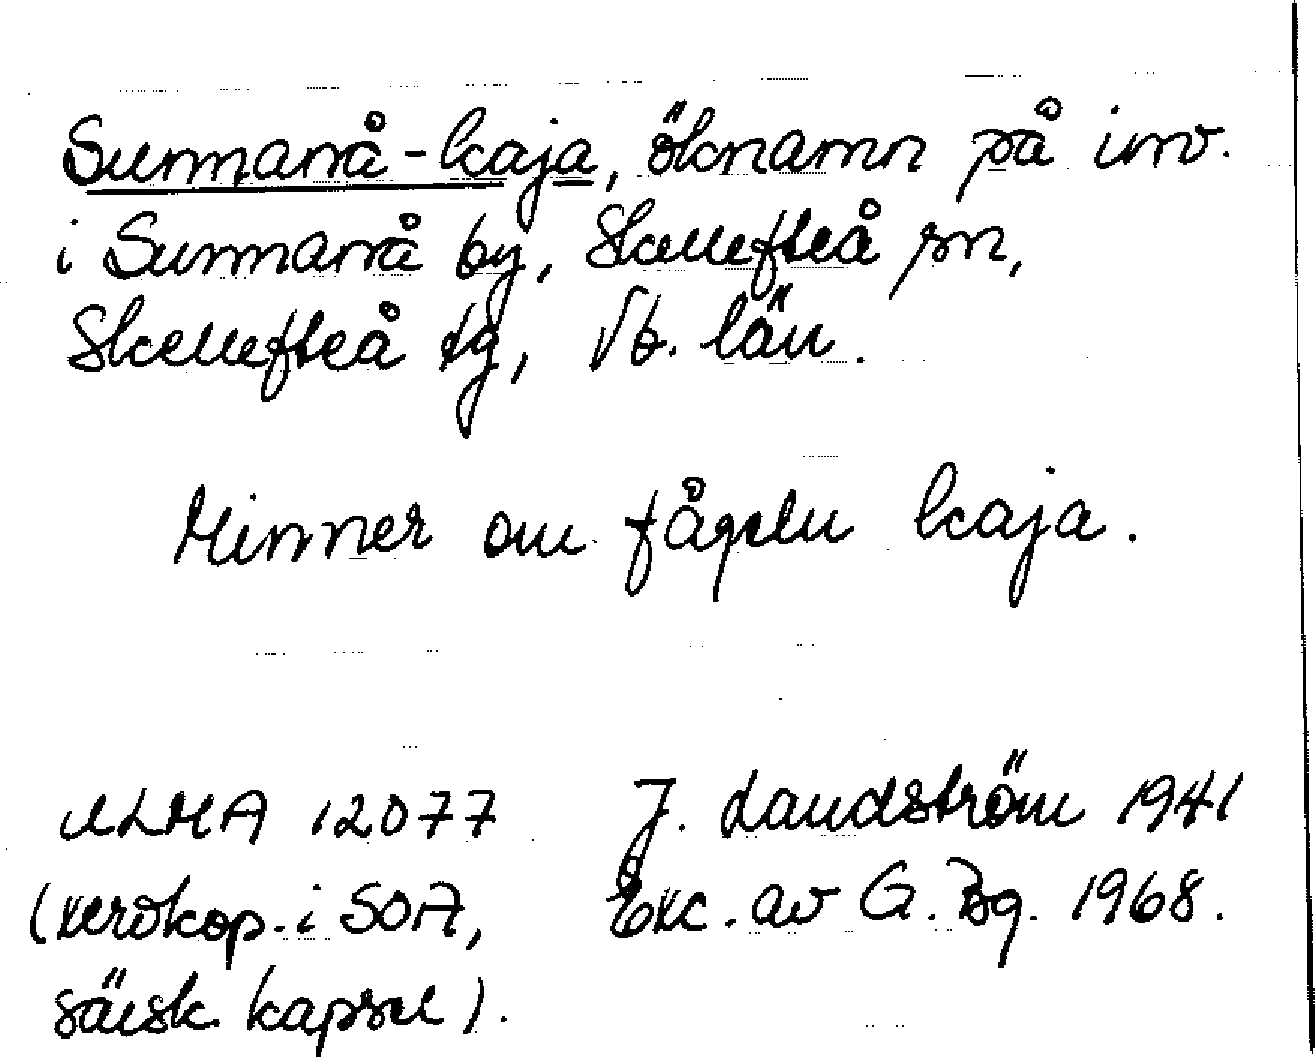 Sunnanå-kaja, öknamn på inv.
i Sunnanå by, Skellefteå sn,
Skellefteå tg, Vb. län.
Minner om fågeln kaja.
ULMA 12077 J. Landström 1941
(xerokop. i SOA, Exc. av G. Bg. 1968.
särsk. kapsel).